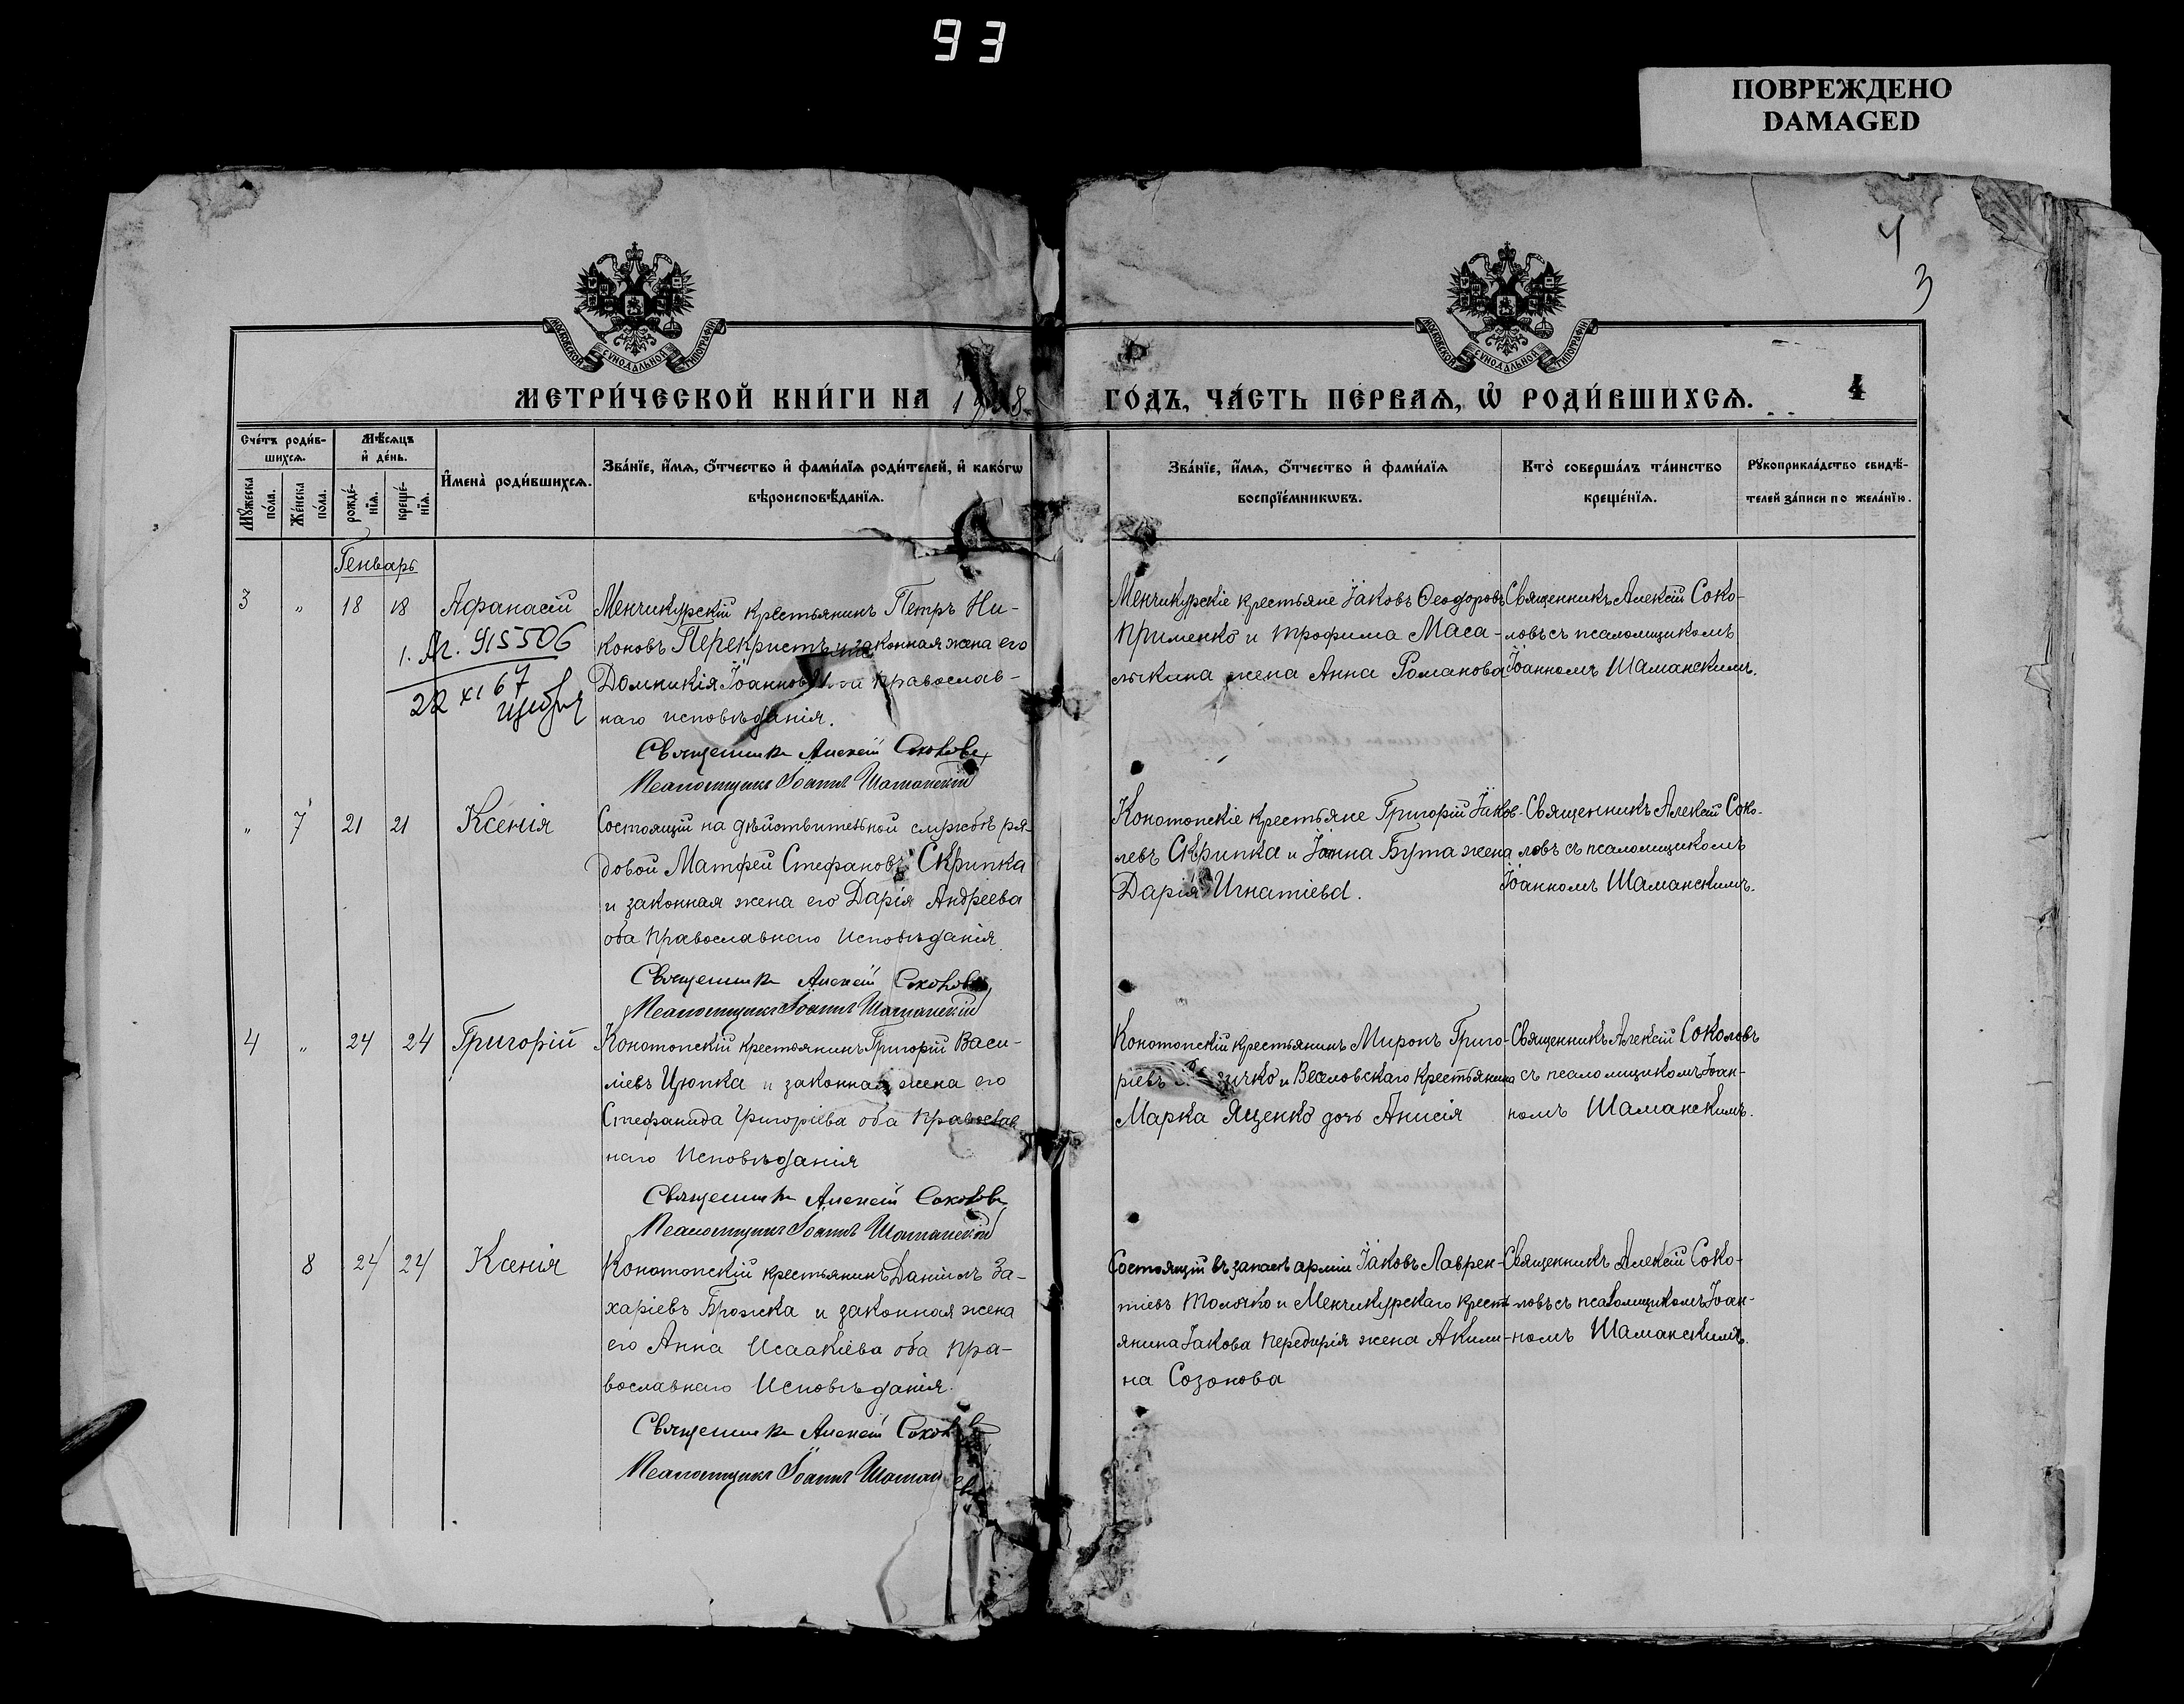 93
ПОВРЕЖДЕНО
DAMAGED
4
3
МОСКОВСКОЙ СѴНОДАЛЬНОЙ ТИПОГРАФІИ
МОСКОВСКОЙ СѴНОДАЛЬНОЙ ТИПОГРАФІИ
МЕТРИ́ЧЕСКОЙ КНИ́ГИ НА 19 8
ГО́ДЪ, ЧА́СТЬ ПЕ́РВАѦ, Ѡ҆ РОДИ́ВШИХСѦ.
4
Сче́тъ роди́в-
шихсѧ.
Мѣ́сѧцъ
и҆ де́нь.
Мꙋ́жеска
по́ла.
Же́нска
по́ла.
рожде́-
нїѧ.
креще́-
нїѧ.
И҆мена̀ роди́вшихсѧ.
Зва́нїе, и҆́мѧ, ѻ҆́тчество и҆ фами́лїѧ роди́телей, и҆ како́гѡ
вѣроисповѣ́данїѧ.
Зва́нїе, и҆́мѧ, ѻ҆́тчество и҆ фами́лїѧ
воспрїе́мникѡвъ.
Кто̀ соверша́лъ та́инство
креще́нїѧ.
Рꙋкоприкла́дство свидѣ́-
телей за́писи по жела́нїю.
Генварь
3 " 18 18 Афанасій
1. Аг. 915506
22 XI 67
Менчикурскій крестьянинъ Петръ Ни-
коновъ Перекристъ и законная жена его
Домникія Іоаннова оба православ-
наго исповѣданія.
Священникъ Алексій Соколовъ
Псаломщикъ Іоаннъ Шаманскій
Менчикурскіе крестьяне Іаковъ Ѳеодоровъ
Применко и Трофима Маса-
лыкина жена Анна Романова
Священникъ Алексій Соко-
ловъ съ псаломщикомъ
Іоанномъ Шаманскимъ.
" 7 21 21 Ксенія
Состоящій на дѣйствительной службѣ ря-
довой Матфей Стефановъ Скрипка
и законная жена его Дарія Андреева
оба православнаго исповѣданія
Священникъ Алексій Соколовъ
Псаломщикъ Іоаннъ Шаманскій
Конотопскіе крестьяне Григорій Іаков-
левъ Скрипка и Іоанна Бута жена
Дарія Игнатіева.
Священникъ Алексій Соко-
ловъ съ псаломщикомъ
Іоанномъ Шаманскимъ.
4 " 24 24 Григорій
Конотопскій крестьянинъ Григорій Васи-
ліевъ Цюпка и законная жена его
Стефанида Григоріева оба православ
наго исповѣданія
Священникъ Алексій Соколовъ
Псаломщикъ Іоаннъ Шаманскій
Конотопскій крестьянинъ Миронъ Григо-
ріевъ и Веселовскаго крестьянина
Марка Яценко дочь Анисія
Священникъ Алексій Соколовъ
съ псаломщикомъ Іоан-
номъ Шаманскимъ.
8 24 24 Ксенія
Конотопскій крестьянинъ Даніилъ За-
харіевъ Брожка и законная жена
его Анна Исаакіева оба пра-
вославнаго исповѣданія.
Священникъ Алексій Соколовъ
Псаломщикъ Іоаннъ Шаман
Состоящій въ запасѣ арміи Іаковъ Лаврен-
тіевъ Толочко и Менчикурскаго крест-
янина Іакова Передирія жена Акили-
на Созонова
Священникъ Алексій Соко-
ловъ съ псаломщикомъ Іоан-
номъ Шаманскимъ.